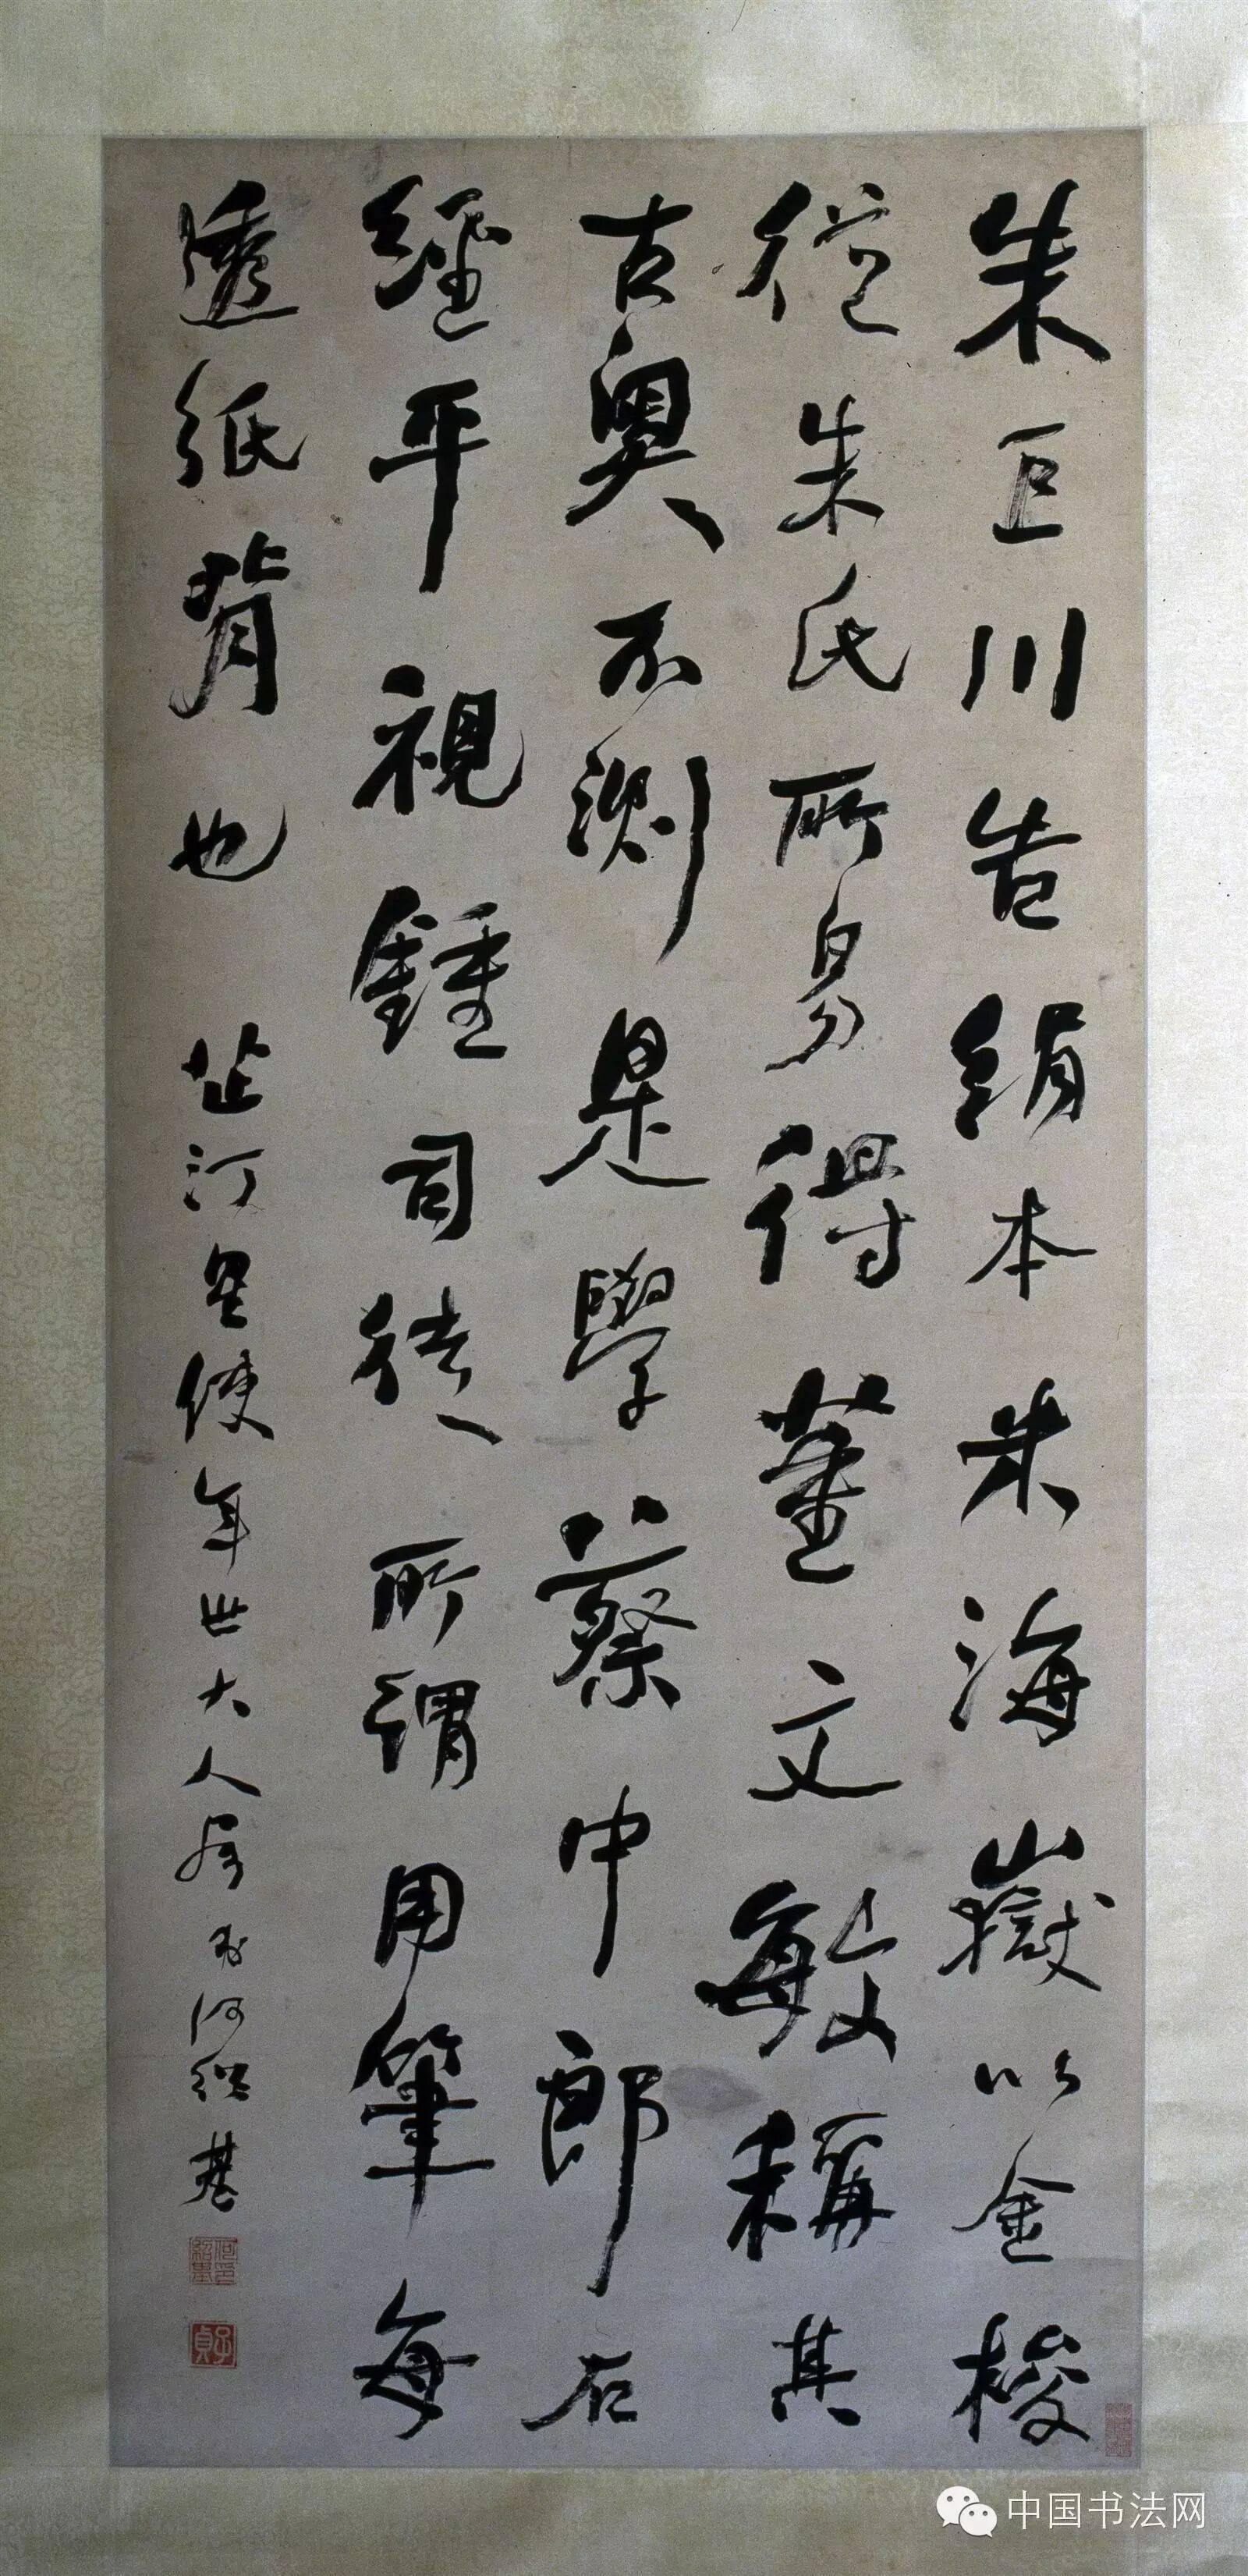 朱巨川告絹本朱海嶽以金梭
從朱氏所易得董文敏稱其
古奧不測是學蔡中郎石
經平視鍾司徒所謂用筆每
透紙背也 芷汀星使年世大人屬 子貞何紹基
何紹基印
子貞
中国书法网